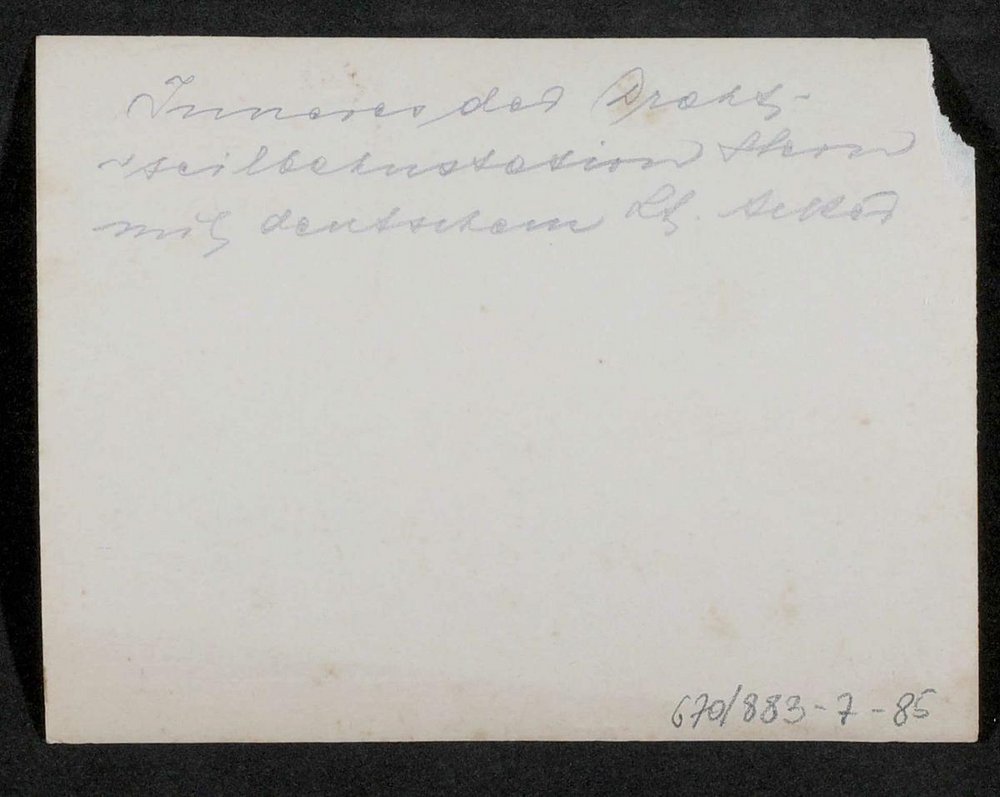 Inneres der Draht-
seilbahnstation Stern
mit deutschem Lt.
670/883-7-85